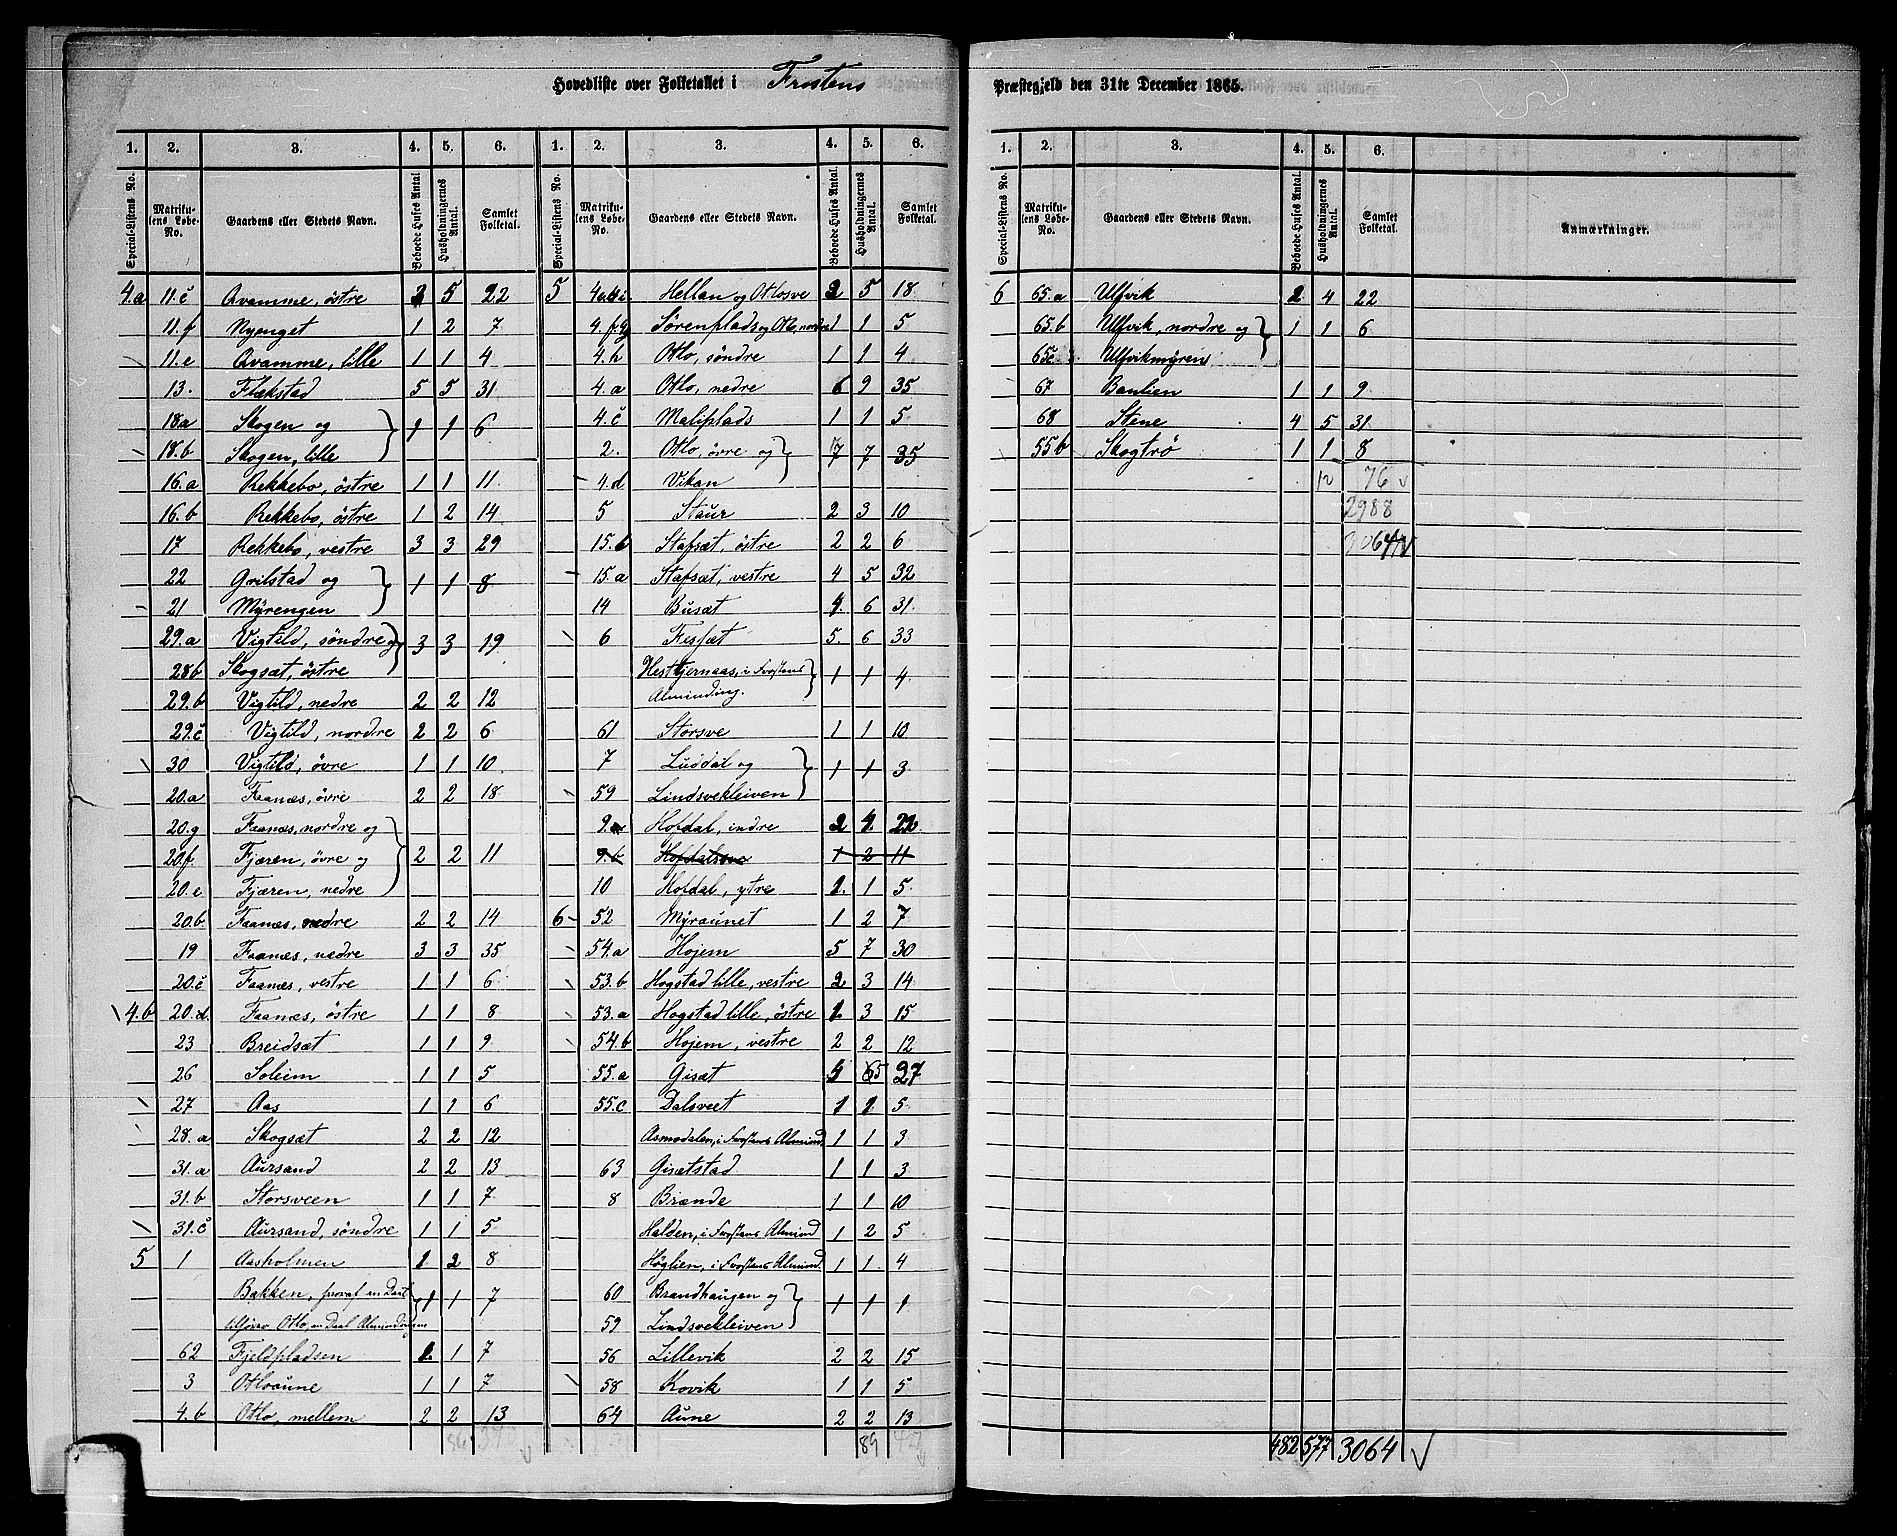 Hovedliste over Folketallet i Frostens Præstegjeld den 31te December 1865.
1. 2. 3. 4. 5. 6.
Special-Listens No. Matrikulens Løbe-No. Gaardens eller Stedets Navn. Beboede Huses Antal. Husholdningernes Antal. Samlet Folketal.
4.a 11.c Qvamme, östre 3 5 22
11.f Nyenget 1 2 7
11.e Qvamme, lille 1 1 4
13. Flekstad 5 5 31
18a Skogen og } 1 1 6
18.b Skogen, lille
16.a Rekkebo, östre 1 1 11
16.b Rekkebo, östre 1 2 14
17 Rekkebo, vestre 3 3 29
22 Grilstad og } 1 1 8
21 Myrengen
29.a Vigtild, söndre og } 3 3 19
28b Skogsæt, östre
29.b Vigtild, nedre 2 2 12
29.c Vigtild, nordre 2 2 6
30 Vigtild, övre 1 1 10
20.a Faanæs, övre 2 2 18
20.g Faanæs, nordre og
20.f. Fjæren, övre og } 2 2 11
20.e Fjæren, nedre
20.b Faanæs, nedre 2 2 14
19 Faanæs, nedre 3 3 35
20.c Faanæs, vestre 1 1 6
4.b 20.d. Faanæs, östre 1 1 8
23 Breidsæt 1 1 9
26 Soleim 1 1 5
27 Aas 1 1 6
28.a Skogsæt 2 2 12
31.a Aursand 2 2 13
31.b Storsveen 1 1 7
31.c Aursand, söndre 1 1 5
5 1 Aasholmen 1 2 8
Bakken, hvoraf en Deel } 1 1 7
Otlo, en Deel Almindingen
62 Fjeldpladsen 1 1 7
3 Otloaune 1 1 7
4.b Otlo, mellem 2 2 13
1. 2. 3. 4. 5. 6.
Special-Listens No. Matrikulens Løbe-No. Gaardens eller Stedets Navn. Beboede Huses Antal. Husholdningernes Antal. Samlet Folketal.
5 Hellan og Otlosve 2 5 18
4.fg Sörenplads og Otlo, nordre 1 1 5
4.h Otlo, söndre 1 1 4
4.a Otlo, nedre 6 9 35
4.c Maliplads 1 1 5
2. Otlo, övre og } 7 7 35
4.d Vikan
5 Staur 2 3 10
15.b Stafsæt, östre 2 2 6
15.a Stafsæt, vestre 4 5 32
14 Busæt 4 6 31
6 Fissæt 5 6 33
Hestkjernaas, i Frostens } 1 1 4
Alminding.
61 Storsve 1 1 10
7 Luddal og } 1 1 3
59 Lindsvekleiven
9.a Hofdal, indre 2 4 22
9.b Hofdalssve 1 2 11
10 Hofdal, ytre 1 1 5
6 52 Myraunet 1 2 7
54.a Hojem 5 7 30
53.b Hogstad lille, vestre 2 3 14
53.a Hogstad lille, östre 1 3 15
54.b Hojem, vestre 2 2 12
55.a Gisæt 5 27
55.c Dalsveet 1 1 5
Asmodalen, i Frostens Almind. 1 1 3
63 Gisætstad 1 1 3
8 Brænde 1 1 10
Halden, i Frostens Almind 1 2 5
Höglien, i Frostens Almind. 1 1 4
60 Brandhaugen og } 1 1 1
59 Lindsvekleiven
56 Lillevik 2 2 15
58 Kovik 1 1 5
64 Aune 2 2 13
89
1. 2. 3. 4. 5. 6.
Special-Listens No. Matrikulens Løbe-No. Gaardens eller Stedets Navn. Beboede Huses Antal. Husholdningernes Antal. Samlet Folketal. Anmærkninger.
6 65.a Ulfvik 2 4 22
65.b Ulfvik, nordre og } 1 1 6
65c Ulfvikmyren
67 Banlien 1 1 9
68 Stene 4 5 31
55b Skogtrö 1 1 8
12 76
2988
3064
482 577 3064